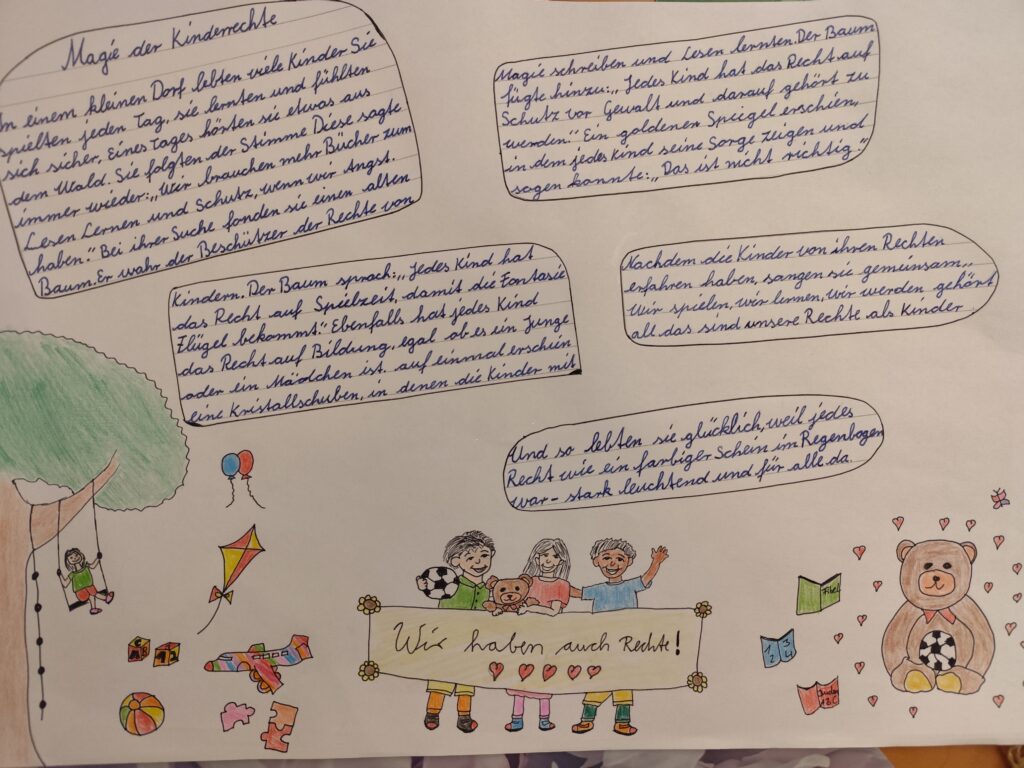 Magie der Kinderrechte
In einem kleinen Dorf lebten viele Kinder Sie
spielten jeden Tag, sie lernten und fühlten
sich sicher. Eines Tages hörten sie etwas aus
dem Wald. Sie folgten der Stimme Diese sagte
immer wieder:„Wir brauchen mehr Bücher zum
Lesen Lernen und Schutz, wenn wir Angst.
haben." Bei ihrer Suche fonden sie einen alten
Baum. Er wahr der Beschützer der Rechte von
Kindern. Der Baum sprach:„Jedes Kind hat
das Recht auf Spielzeit, damit die Fantasie
Flügel bekommt." Ebenfalls hat jedes Kind
das Recht auf Bildung, egal ob es ein Junge
oder ein Mädchen ist. auf einmal erschien
eine Kristallschuben, in denen die Kinder mit
Magie schreiben und Lesen lernten. Der Baum
fügte hinzu:„Jedes Kind hat das Recht auf
Schutz vor Gewalt und darauf gehört zu
werden." Ein goldenen Spiegel erschien,
in dem jedes Kind seine Sorge zeigen und
sagen konnte:„Das ist nicht richtig."
Nachdem die Kinder von ihren Rechten
erfahren haben, sangen sie gemeinsam„
Wir spielen, wir lernen, wir werden gehört
all das sind unsere Rechte als Kinder
Und so lebten sie glücklich, weil jedes
Recht wie ein farbiger Schein im Regenbogen
war - stark leuchtend und für alle da.
Wir haben auch Rechte!
Fibel
1 2 3 4
ABC